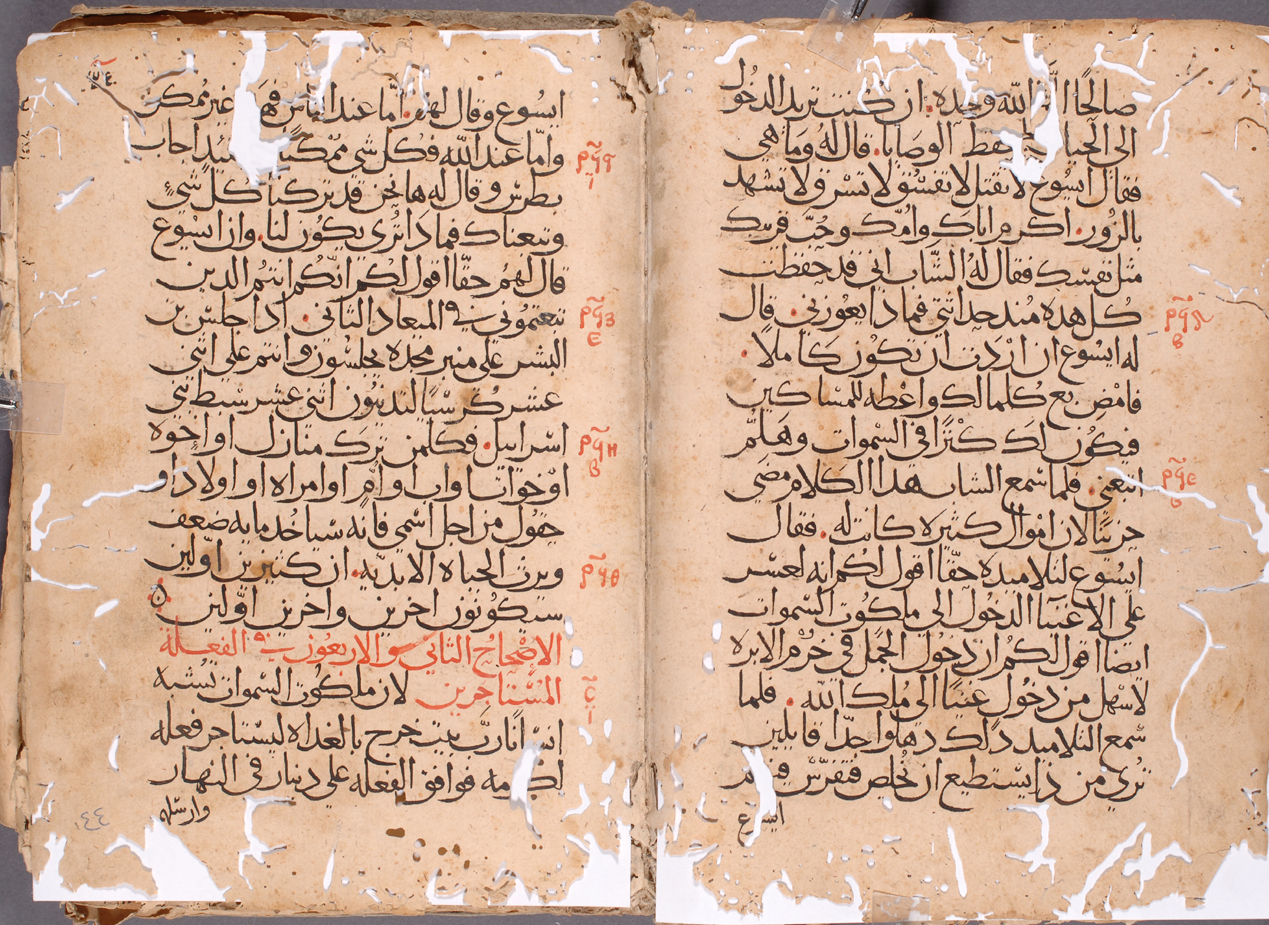 صالحًا الا الله وحده. ان كنت تريد الدخول
الى الحياه احفظ الوصايا. قال له وما هي
فقال ايسوع لا تقتل لا تفسق لا تسرق ولا تشهد
بالزور. اكرم اباك وامك وحب قريبك
مثل نفسك فقال له الشاب اني قد حفظت
كل هذه منذ حداثتي فماذا يعوزني. قال
له ايسوع ان اردت ان تكون كاملًا.
فامض بع كلما لك واعطه للمساكين
فيكون لك كنزًا في السموات وهلم
اتبعني. فلما سمع الشاب هذا الكلام مضي
حزينًا لان اموال كثيره كانت له. فقال
ايسوع لتلاميذه حقًا اقول لكم انه لعسر
علي الاغنيآ الدخول الى ملكوت السموات
ايضا اقول لكم ان دخول الجمل في خرم الابره
لاسهل من دخول غنيًا الى ملك الله. فلما
سمع التلاميذ ذلك دهلوا جدًا قايلين
تُري من ذا يستطيع ان يخلص فتفرس فيهم
ايسوع
ايسوع وقال لهم. امّا عند الناس فهذا غير ممكن
وامّا عند الله فكل شي ممكن. حينيذ اجاب
بطرس وقال له ها نحن قد تركنا كل شيء
وتبعناك فماذا تُري يكون لنا. وان ايسوع
قال لهم حقًا اقول لكم انكم انتم الذين
تبعتموني في الميعاد الثاني. اذا جلس بن
البشر علي منبر مجده تجلسون وانتم علي اثني
عشر كرسيًا لتدينون اثني عشر سبط بني
اسراييل. فكلمن ترك منازل او اخوه
او خوات او اب او ام او امراه او اولاد او
حقول من اجل اسمي فانه سياخذ مايه ضعف
ويرث الحياه الابديه. ان كثيرين اولين
سيكونون اخرين واخرين اوّلين
الاصحاح الثاني والاربعون في الفعلة
المستاجرين لان ملكوت السموات تشبه
انسانًا ربّ بيت خرج بالغداه ليستاجر فعله
لكرمه فوافق الفعله علي دينار في النهار
وارسله
١٤٤